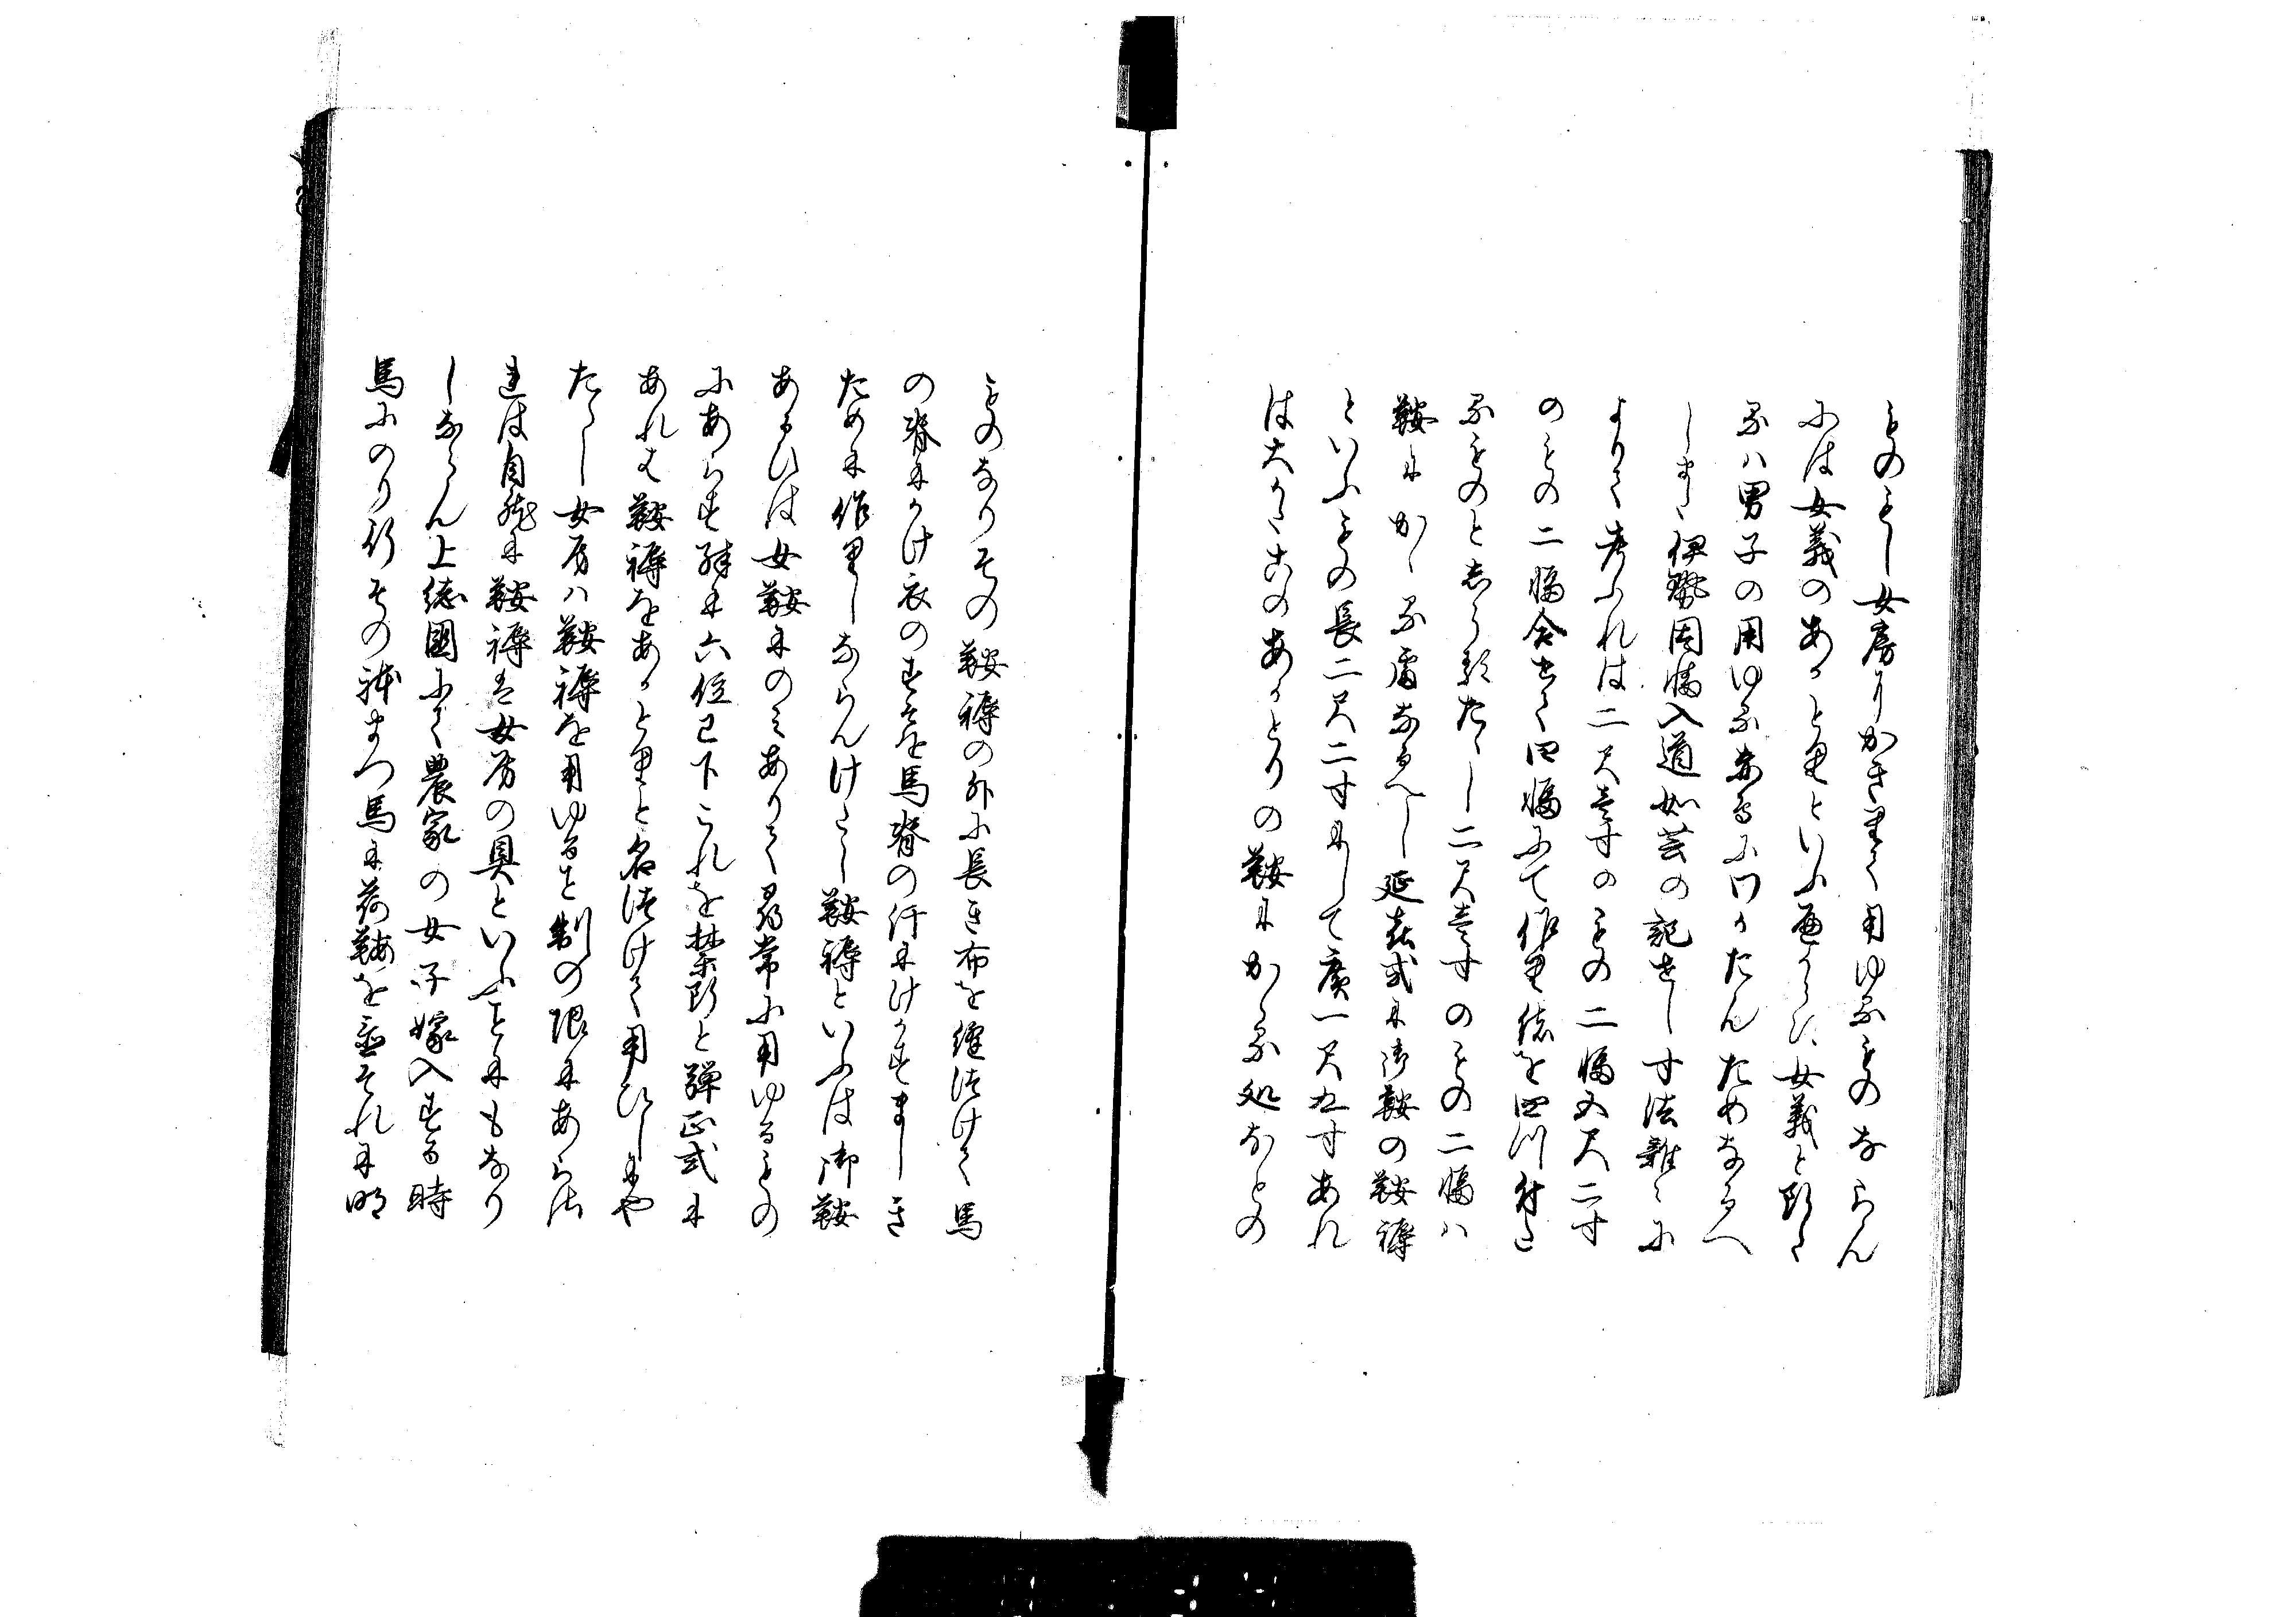 ものもし女房りかき里て用ゆるものならん
には女義のあかとりといふへからす女義と断く
るハ男子の用ゆる赤るにわかたんためなるへ
しまた伊勢因幡入道如芸の記せし寸法雑々に
よりて考ふれは二尺壱寸のもの二幅五尺二寸
のもの二幅合せて四幅にて作里緒を四つ付る
るものとしら類たゝし二尺壱寸のもの二幅ハ
鞍にかゝる處なるへし延喜式に御鞍の鞍褥
といふもの長二尺二寸にして廣一尺九寸あれ
は大かたこのあかとりの鞍にかゝる処なとの
ものなりその鞍褥の外に長き布を縫つけて馬
の脊にかけ衣のすそを馬脊の汗にけかすましき
ために作里しならんけたし鞍褥といふは御鞍
あるひは女鞍にのミありて尋常に用ゆるもの
にあらす殊に六位已下これを禁断と弾正式に
あれは鞍褥をあかと里と名つけて用ひしにや
たゝし女房ハ鞍褥を用ゆると制の限にあらさ
連は自然に鞍褥は女房の具といふことにもなり
しならん上總國にて農家の女子嫁入する時
馬にのり行その躰まつ馬に荷鞍を置それに明